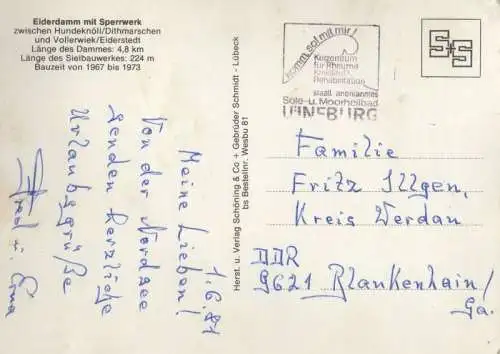 Eiderdamm mit Sperrwerk
zwischen Hundeknöll/Dithmarschen
und Vollerwiek/Eiderstedt
Länge des Dammes: 4,8 km
Länge des Sielbauwerkes: 224 m
Bauzeit von 1967 bis 1973
1.6.81
Meine Lieben!
Von der Nordsee
senden herzliche
Urlaubsgrüße
u. Erna
Herst. u. Verlag Schöning & Co + Gebrüder Schmidt - Lübeck
bs Bestellnr. Wesbu 81
komm, sol mit mir!
Kurzentrum
für Rheuma
Rehabilitation
staatl. anerkanntes
Sole- u. Moorheilbad
LÜNEBURG
S+S
Familie
Fritz Illgen,
Kreis Werdau
DDR
9621 Blankenhain/
Ga.